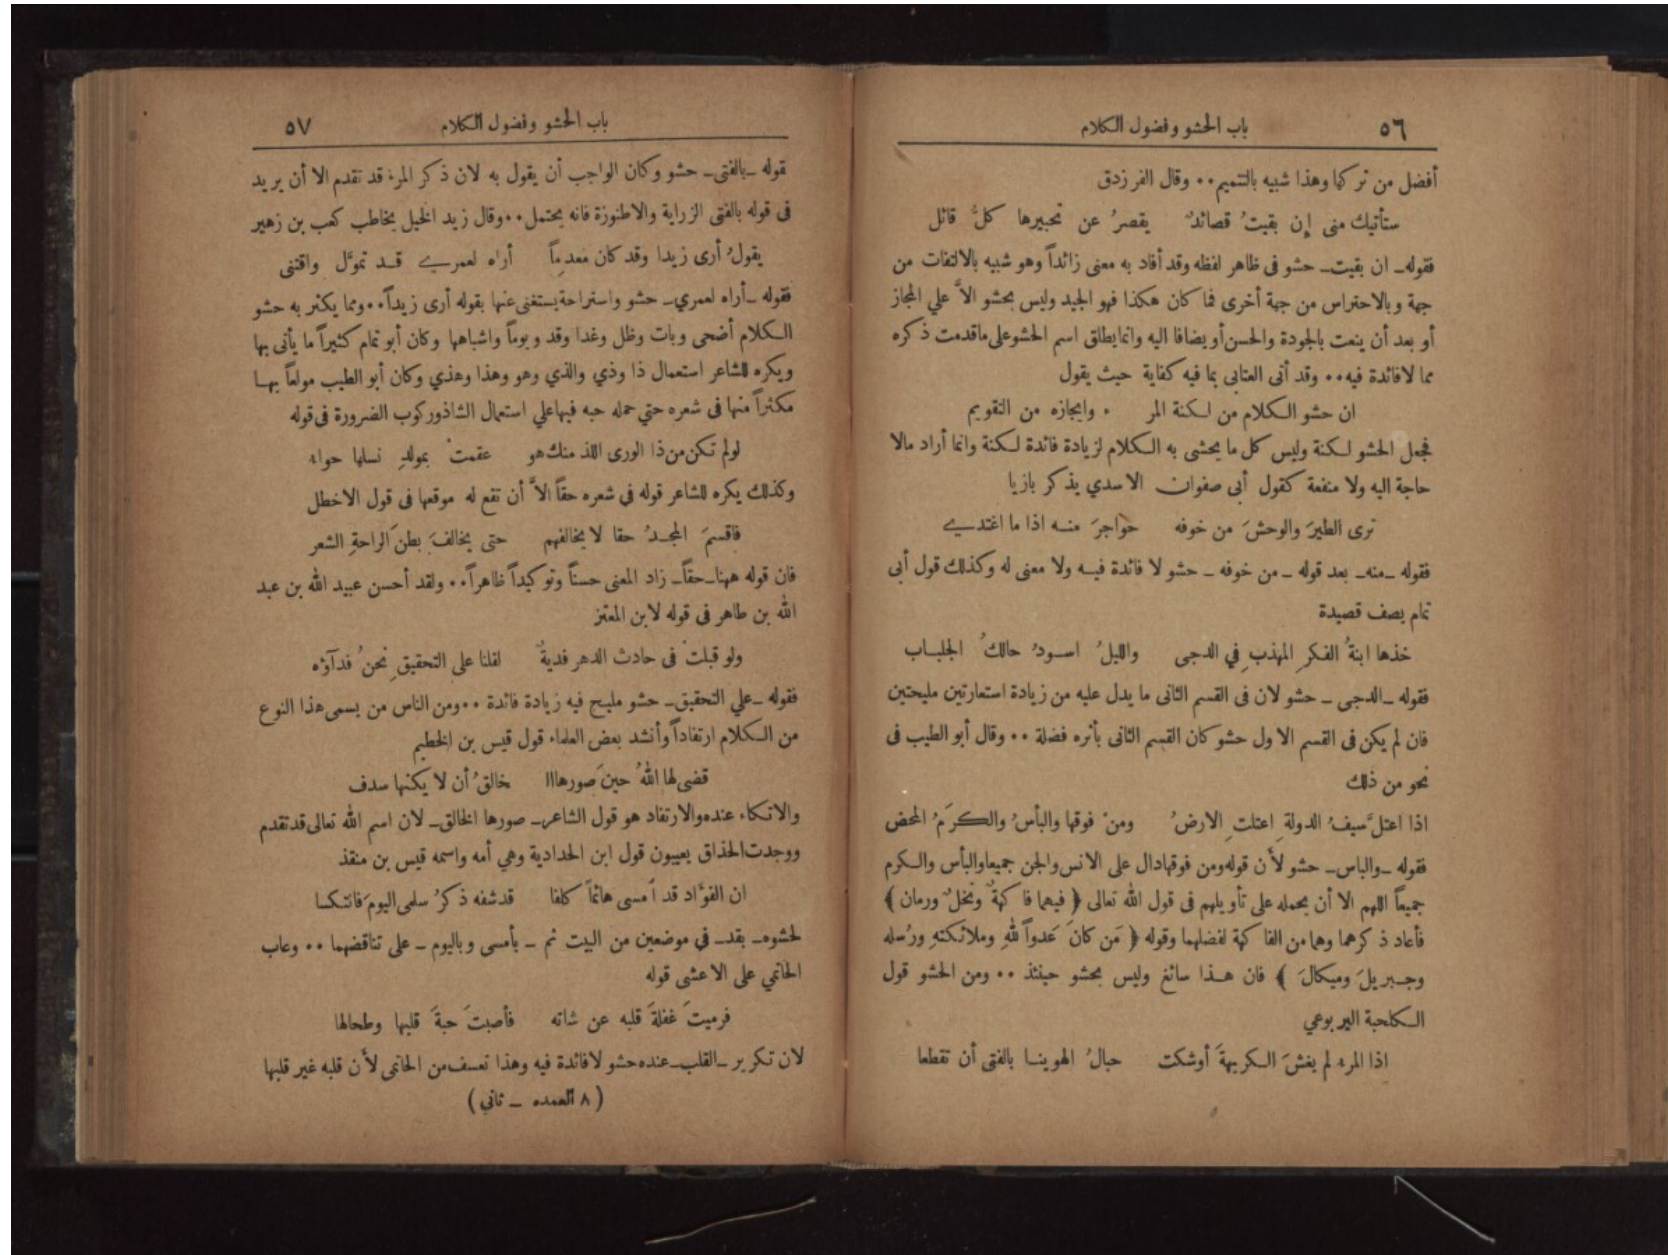 ٥٦ باب الحشو وفضول الكلام
أفضل من تركها وهذا شبيه بالتتميم٠٠ وقال الفرزدق
ستأتيك منى إن بقيتُ قصائدٌ يقصرُ عن تحبيرها كلُّ قائل
فقوله ـ ان بقيت ـ حشو فى ظاهر لفظه وقد أفاد به معنى زائداً وهو شبيه بالالتفات من
جهة وبالاحتراس من جهة أخرى فما كان هكذا فهو الجيد وليس بحشو الاَّ علي المجاز
أو بعد أن ينعت بالجودة والحسن أو يضافا اليه وانما يطلق اسم الحشو على ماقدمت ذكره
مما لا فائدة فيه٠٠ وقد أتى العتابى بما فيه كفاية حيث يقول
ان حشو الكلام من لكنة المر ء وايجازه من التقويم
فجعل الحشو لكنة وليس كل ما يحشى به الكلام لزيادة فائدة لكنة وانما أراد مالا
حاجة اليه ولا منفعة كقول أبى صفوان الاسدي يذكر بازيا
ترى الطيرَ والوحشَ من خوفه حواجرَ منه اذا ما اغتدے
فقوله ـ منه ـ بعد قوله ـ من خوفه ـ حشو لا فائدة فيه ولا معنى له وكذلك قول أبى
تمام يصف قصيدة
خذها ابنةُ الفكرِ المهذبِ في الدجى والليلُ اسودُ حالكُ الجلباب
فقوله ـ الدجى ـ حشو لان فى القسم الثانى ما يدل عليه من زيادة استعارتين مليحتين
فان لم يكن فى القسم الاول حشو كان القسم الثانى بأثره فضلة ٠٠ وقال أبو الطيب فى
نحو من ذلك
اذا اعتلَّ سيفُ الدولةِ اعتلتِ الارضُ ومنْ فوقها والبأسُ والكرَمُ المحض
فقوله ـ والباس ـ حشو لأن قوله ومن فوقها دال على الانس والجن جميعا والبأس والكرم
جميعاً اللهم الا أن يحمله على تأويلهم فى قول الله تعالى ﴿ فيهما فاكهةٌ ونخلٌ ورمان ﴾
فأعاد ذكرهما وهما من الفاكهة لفضلهما وقوله ﴿ مَن كانَ عَدواً للهِ وملائكتهِ ورُسله
وجبريلَ وميكالَ ﴾ فان هذا سائغ وليس بحشو حينئذ ٠٠ ومن الحشو قول
الكلحبة اليربوعي
اذا المرء لم يغشَ الكريهةَ أوشكت حبالُ الهوينا بالفتى أن تقطعا
باب الحشو وفضول الكلام ٥٧
قوله ـ بالفتى ـ حشو وكان الواجب أن يقول به لان ذكر المرء قد تقدم الا أن يريد
فى قوله بالفتى الزراية والاطنوزة فانه يحتمل٠٠ وقال زيد الخيل يخاطب كعب بن زهير
يقولُ أرى زيدا وقد كان معدِماً أراه لعمرے قد تموَّل واقتنى
فقوله ـ أراه لعمري ـ حشو واستراحة يستغنى عنها بقوله أرى زيداً٠٠ ومما يكثر به حشو
الكلام أضحى وبات وظل وغدا وقد ويوماً واشباهها وكان أبو تمام كثيراً ما يأتى بها
ويكره للشاعر استعمال ذا وذي والذي وهو وهذا وهذي وكان أبو الطيب مولعاً بها
مكثراً منها فى شعره حتي حمله حبه فيها علي استعمال الشاذ وركوب الضرورة فى قوله
لولم تكن من ذا الورى اللذ منك هو عقمتْ بمولدِ نسلها حواء
وكذلك يكره للشاعر قوله في شعره حقاً الاَّ أن تقع له موقعها فى قول الاخطل
فاقسمَ المجدُ حقا لا يخالفهم حتى يخالفَ بطنَ الراحةِ الشعر
فان قوله ههنا ـ حقاً ـ زاد المعنى حسناً وتوكيداً ظاهراً٠٠ ولقد أحسن عبيد الله بن عبد
الله بن طاهر فى قوله لابن المعتز
ولو قبلتْ فى حادث الدهر فديةٌ لقلنا على التحقيقِ نحنُ فدآؤه
فقوله ـ علي التحقيق ـ حشو مليح فيه زيادة فائدة ٠٠ ومن الناس من يسمى هذا النوع
من الكلام ارتفاداً وأنشد بعض العلماء قول قيس بن الخطيم
قضى لها اللهُ حينَ صورها ا خالقُ أن لا يكنها سدف
والاتكاء عنده والارتفاد هو قول الشاعر ـ صورها الخالق ـ لان اسم الله تعالى قد تقدم
ووجدت الحذاق يعيبون قول ابن الحدادية وهي أمه واسمه قيس بن منقذ
ان الفؤاد قد أمسى هائماً كلفا قد شفه ذكرُ سلمى اليومَ فانتكسا
لحشوه ـ بقد ـ في موضعين من البيت ثم ـ بأمسى وباليوم ـ على تناقضهما ٠٠ وعاب
الحاتمي على الاعشى قوله
فرميتَ غفلةَ قلبه عن شاته فأصبتَ حبةَ قلبها وطحالها
لان تكرير ـ القلب ـ عنده حشو لا فائدة فيه وهذا تعسف من الحاتمى لأن قلبه غير قلبها
(٨ العمده ـ ثاني)